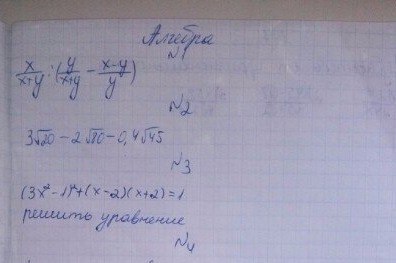 Алгебра
№1
x/(x+y) : (y/(x+y) − (x−y)/y)
№2
3√20 − 2√80 − 0,4√45
№3
(3x²−1)²+(x−2)(x+2)=1
решить уравнение
№4